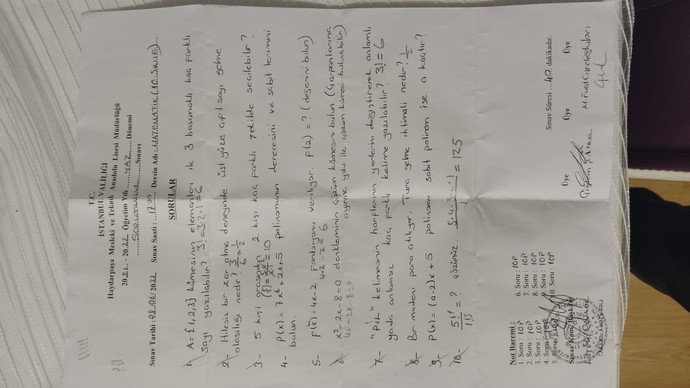 T.C.
İSTANBUL VALİLİĞİ
Haydarpaşa Mesleki ve Teknik Anadolu Lisesi Müdürlüğü
2021 - 2022 Öğretim Yılı YAZ Dönemi
SORUMLULUK Sınavı
Sınav Tarihi : 08.06/2022 Sınav Saati : 12.00 Dersin Adı : MATEMATİK (10. SINIF)
SORULAR
1- A = {1,2,3} kümesinin elemanları ile 3 basamaklı kaç farklı
sayı yazılabilir? 3! = 3.2.1 = 6
2- Hilesiz bir zar atma deneyinde üst yüze çift sayı gelme
olasılığı nedir? 3/6 = 1/2
3- 5 kişi arasından 2 kişi kaç farklı şekilde seçilebilir?
= 10
4- P(x) = 7x⁶ + 2x + 5 polinomunun derecesini ve sabit terimini
bulun
5- F(x) = 4x - 2 fonksiyonu veriliyor. F(2) = ? (değerini bulun)
4.2 - 2 = 6
6- x² - 2x - 8 = 0 denkleminin çözüm kümesini bulun (Çarpanlarına
ayırma yolu ile çözüm kümesi bulunabilir)
7- "PIL" kelimesinin harflerinin yerlerini değiştirerek anlamlı
yada anlamsız kaç farklı kelime yazılabilir? 3! = 6
8- Bir madeni para atılıyor. Tura gelme ihtimali nedir? 1/2
9- P(x) = (a-2)x + 5 polinomu sabit polinom ise a kaçtır?
10- 5!/1! = ? çözünüz 5.4.3.2.1/1 = 125
Not Baremi :
1. Soru : 10P 6. Soru : 10P
2. Soru : 10P 7. Soru : 10P
3. Soru : 10P 8. Soru : 10P
4. Soru : 10P 9. Soru : 10P
Sınav Süresi : 40 dakikadır.
Üye Üye Üye